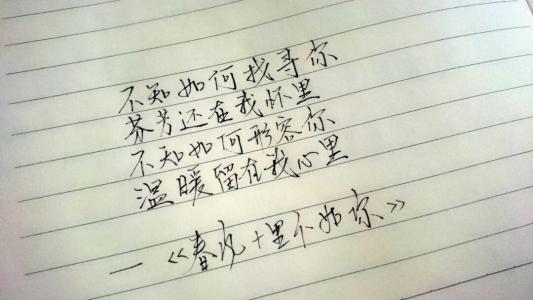 不知如何找寻你
芬芳还在我怀里
不知如何形容你
温暖留在我心里
—《春风十里不如你》